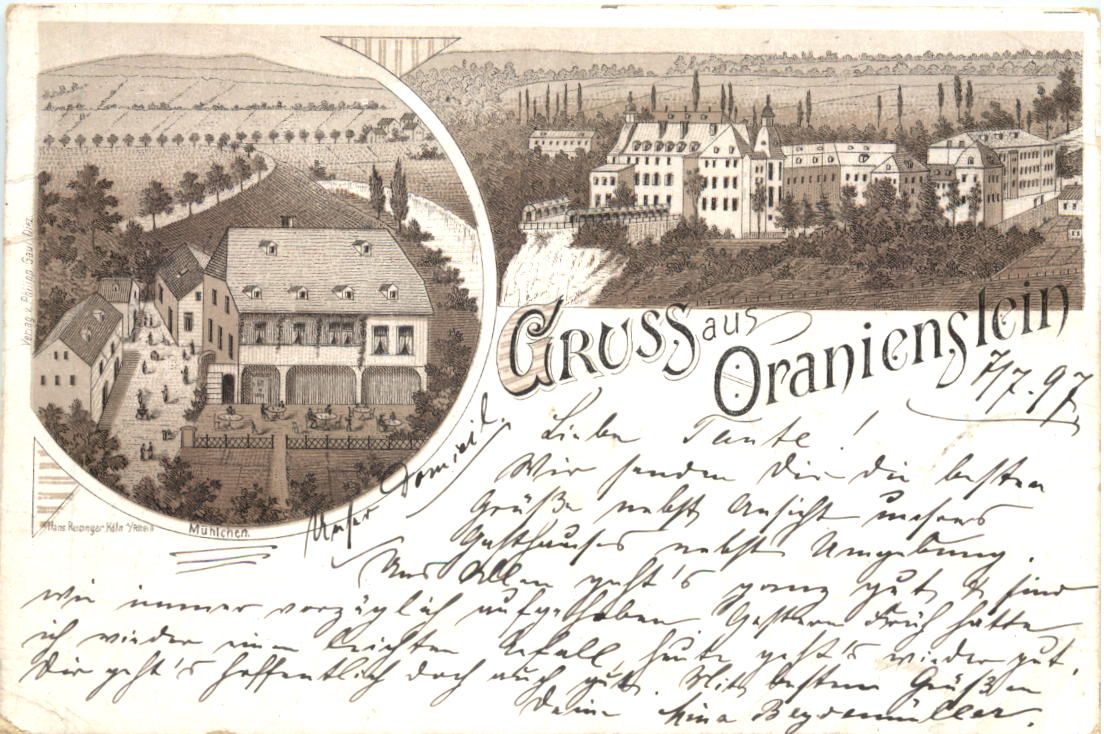 Verlag v. Philipp Gaul, Diez.
Hans Reisinger, Köln a/Rhein
Mühlchen.
Gruss aus
Oranienstein
7/7. 97
Unser Domizil.
Liebe Tante!
Wir senden Dir die besten
Grüße nebst Ansicht unseres
Gasthauses nebst Umgebung.
Uns Allen geht's ganz gut & sind
wie immer vorzüglich aufgehoben. Gestern Früh hatte
ich wieder einen leichten Anfall, heute geht's wieder gut.
Dir geht's hoffentlich doch auch gut. Mit besten Grüßen
Deine Mina